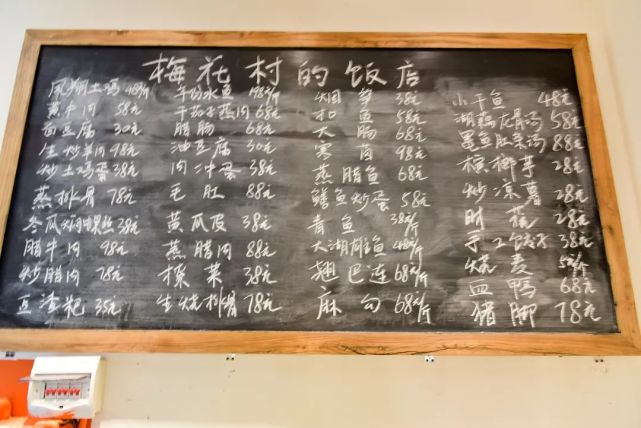 梅花村的饭店
凤翔土鸡
蒸牛肉 58元
面豆腐 30元
生炒羊肉 98元
炒土鸡蛋 38元
蒸排骨 78元
冬瓜焖螺丝 38元
腊牛肉 98元
炒腊肉 78元
豆渣粑 35元
198元/斤
干茄子蒸肉 68元
腊肠 68元
油豆腐 30元
肉冲蛋 38元
毛肚 88元
黄瓜皮 38元
蒸腊肉 88元
榨菜 38元
生烧排骨 78元
烟笋 38元
58元
大肠 68元
寒菌 98元
蒸腊鱼 68元
鳝鱼炒蛋 58元
青鱼 38元/斤
大湖雄鱼 48元/斤
翘巴连 68元/斤
麻勾 68元/斤
小干鱼 48元
湖藕龙骨汤 58元
墨鱼肚条汤 88元
槟榔芋 28元
炒凉薯 28元
时蔬 28元
手工饺子 38元
烧麦 5元/斤
血鸭 68元
猪脚 78元